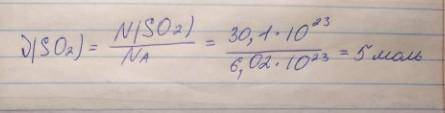 ν(SO₂) = N(SO₂) / N_A = 30,1·10²³ / 6,02·10²³ = 5 моль